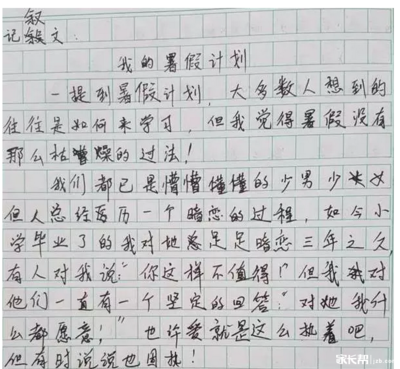 叙
记叙文:
我的暑假计划
一提到暑假计划,大多数人想到的
往往是如何来学习,但我觉得暑假没有
那么枯燥的过法!
我们都已是懵懵懂懂的少男少女
但人总经历一个暗恋的过程,如今小
学毕业了的我对她足足暗恋三年之久
有人对我说:“你这样不值得!”但我对
他们一直有一个坚定的回答:“对她我什
么都愿意!”也许爱就是这么执着吧,
但有时说说也固执!
家长帮 jzb.com